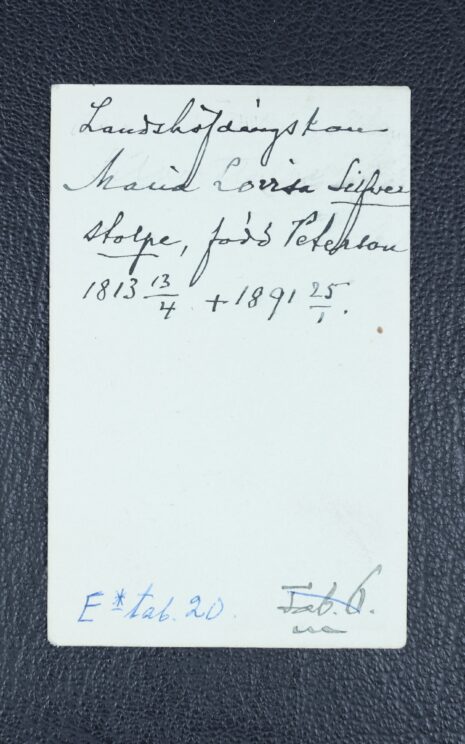 Landshöfdingskan
Maria Lovisa Silfver
stolpe, född Peterson
1813 13/4 + 1891 25/1.
E* tab. 20. Tab. 6.